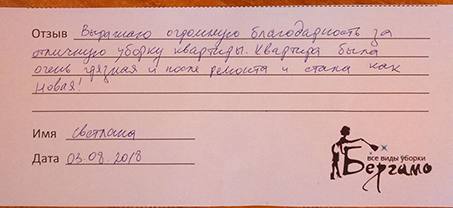 Отзыв Выражаю огромную благодарность за
отличную уборку квартиры. Квартира была
очень грязная и после ремонта и стала как
новая!
Имя Светлана
Дата 03.08.2018
все виды уборки
Бергамо